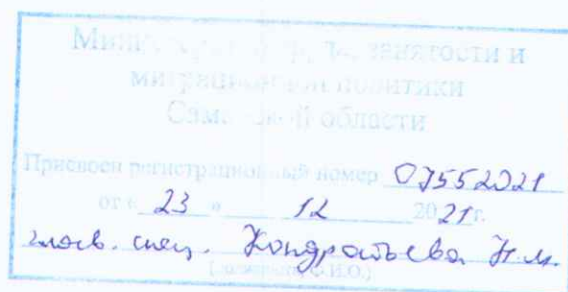 Министерство труда, занятости и
миграционной политики
Самарской области
Присвоен регистрационный номер 07552021
от « 23 » 12 2021 г.
главн. спец. Кондратьева Н.М.
(должность, Ф.И.О.)